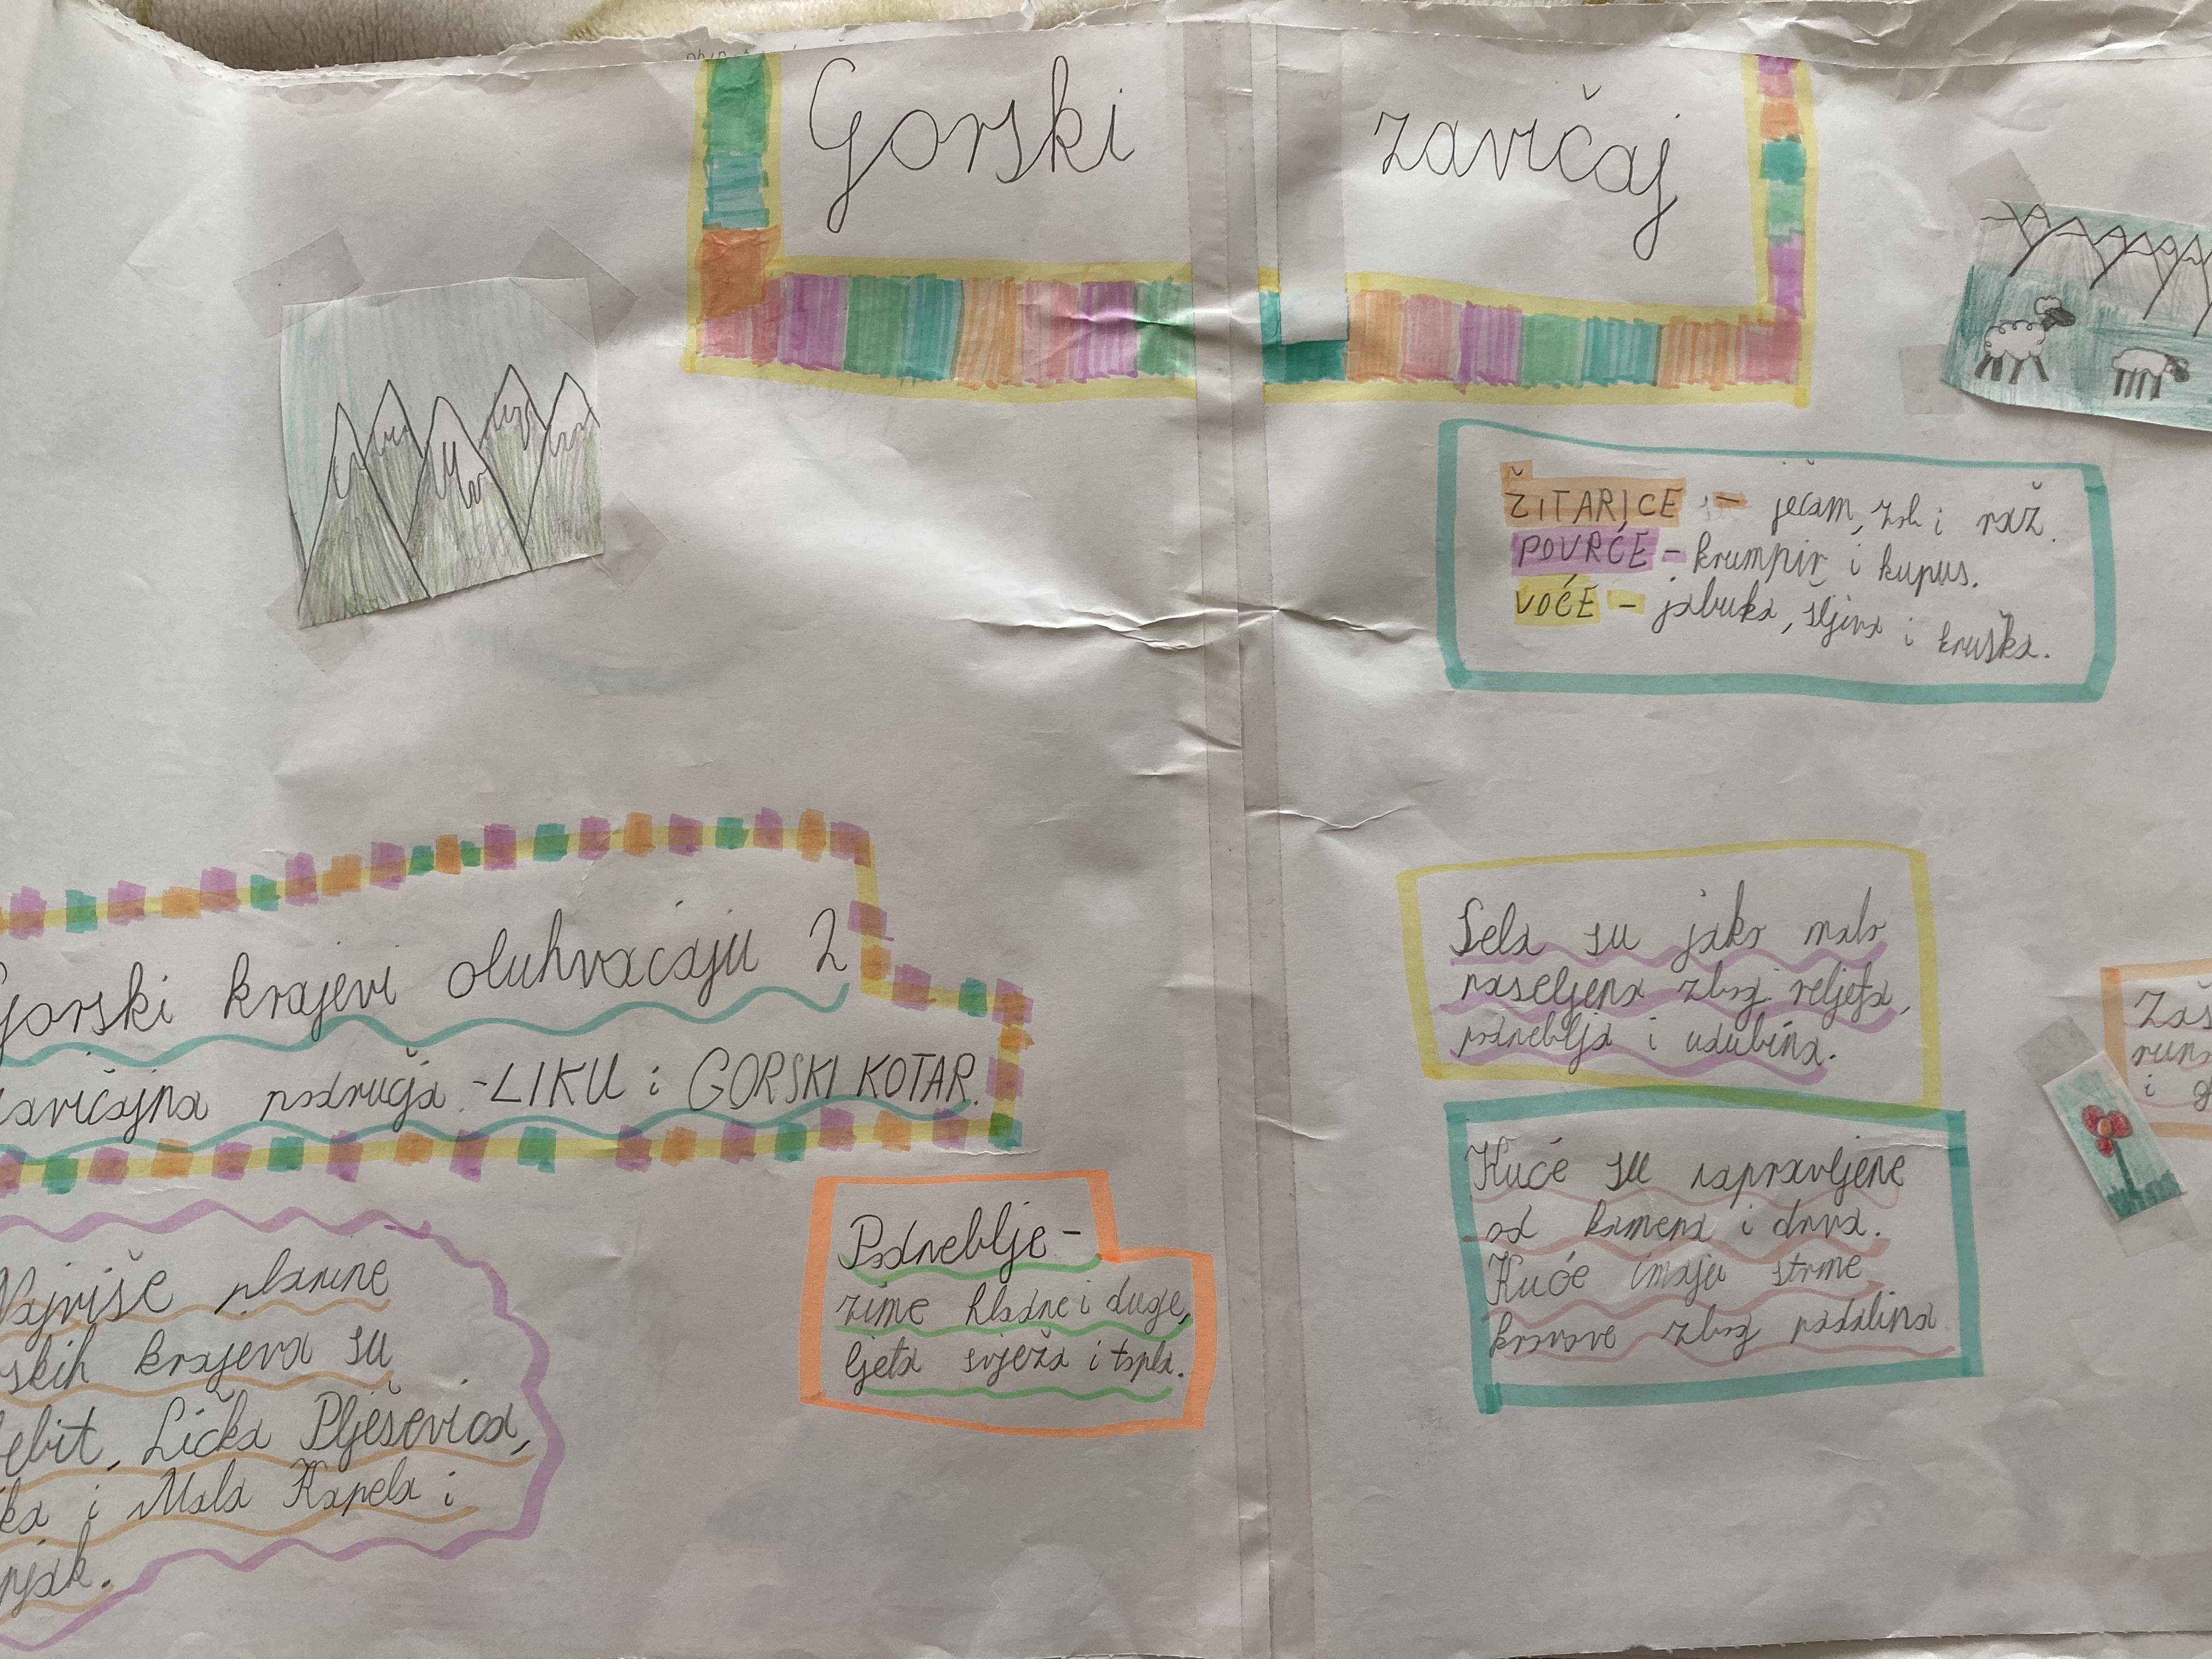 Gorski zavičaj
ŽITARICE - ječam, zob i raž.
POVRĆE - krumpir i kupus.
VOĆE - jabuka, šljiva i kruška.
Gorski krajevi obuhvaćaju 2
zavičajna područja - LIKU i GORSKI KOTAR.
Sela su jako malo
naseljena zbog reljefa,
podneblja i udubina.
Kuće su napravljene
od kamena i drva.
Kuće imaju strme
krovove zbog padalina
Podneblje -
zime hladne i duge,
ljeta svježa i topla.
Najviše planine
skih krajeva su
ebit, Lička Plješevica,
ka i Mala Kapela i
njak.
Zaš
runo
i g